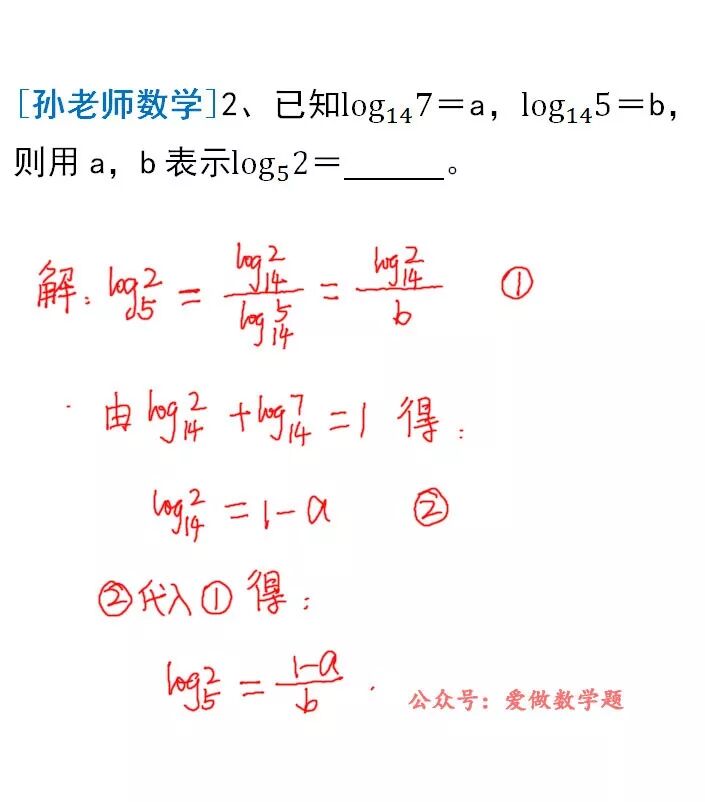 [孙老师数学]2、已知log₁₄7＝a，log₁₄5＝b，
则用 a，b 表示log₅2＝______。
解：log₅2 = log₁₄2/log₁₄5 = log₁₄2/b ①
由 log₁₄2 + log₁₄7 = 1 得：
log₁₄2 = 1-a ②
②代入①得：
log₅2 = (1-a)/b .
公众号：爱做数学题